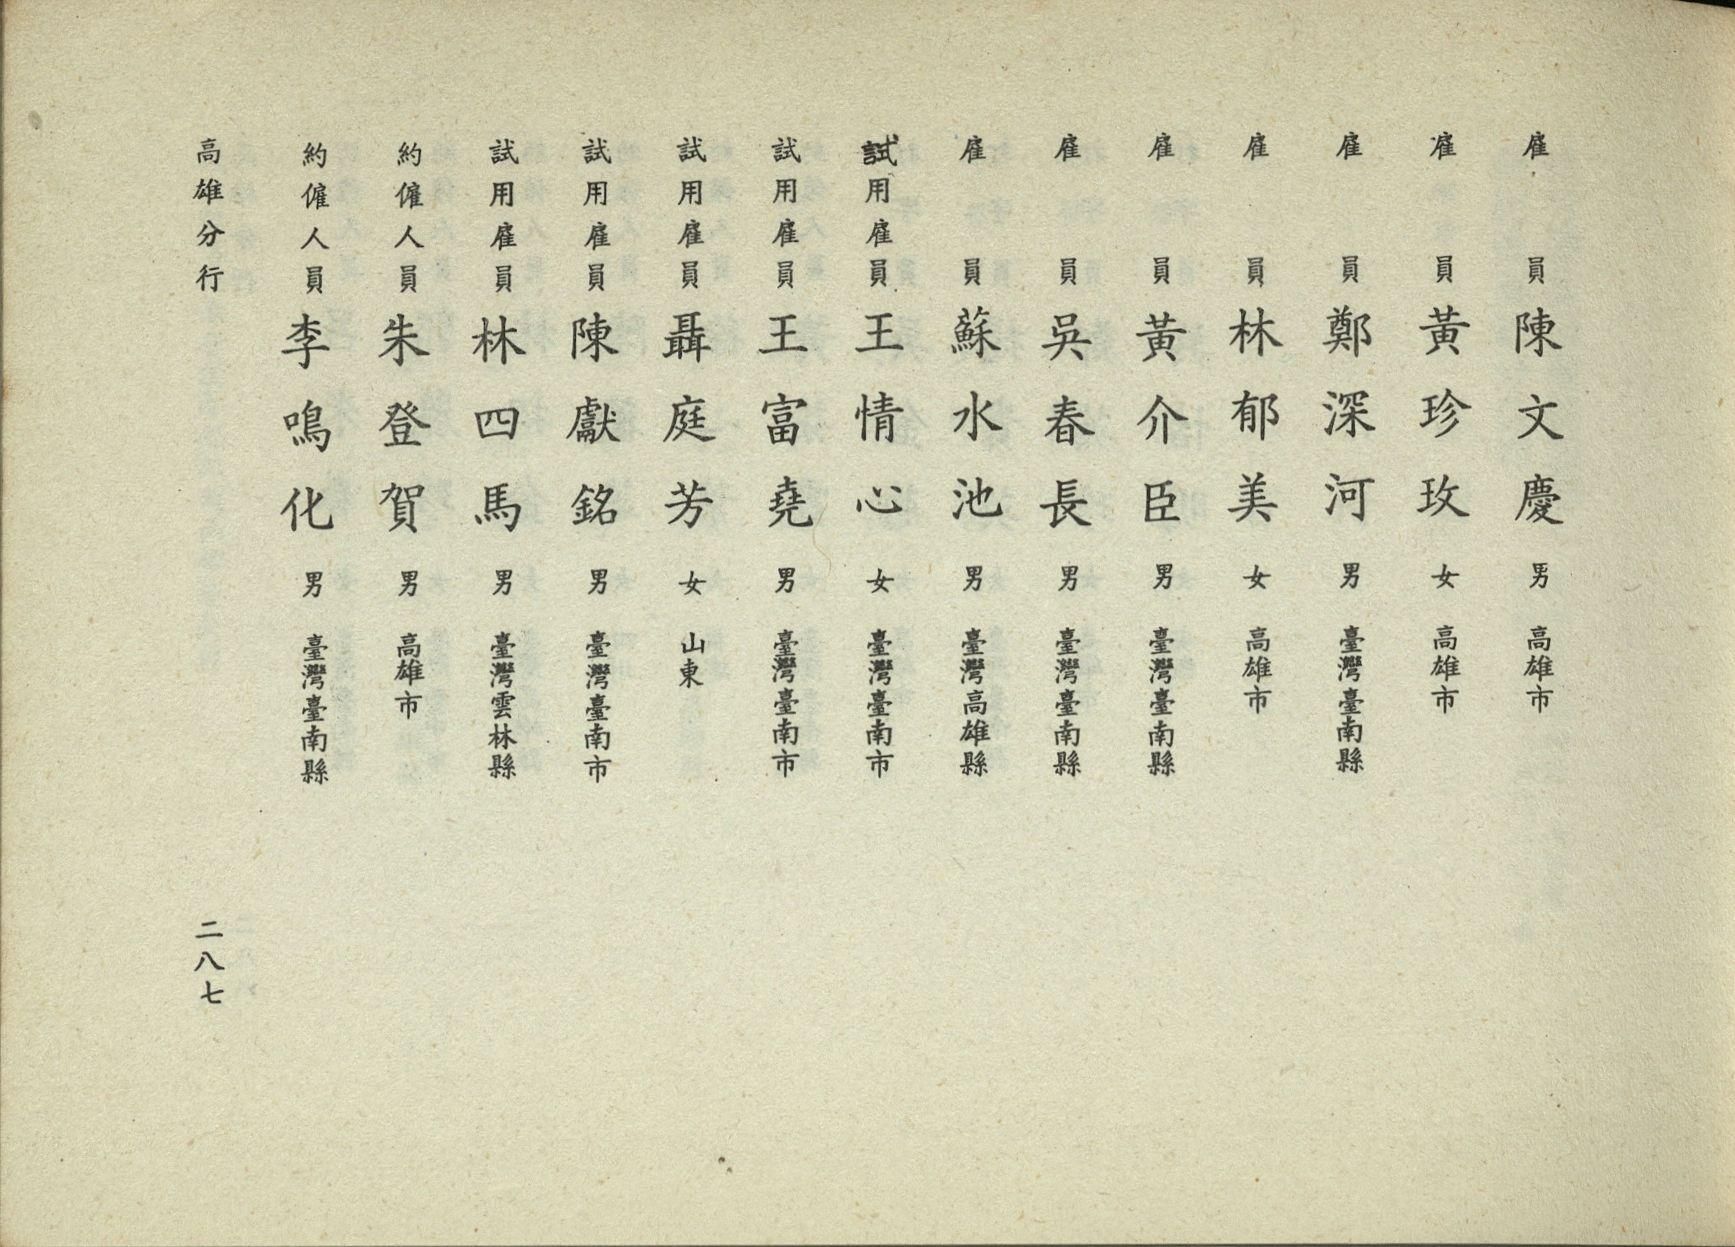 雇員陳文慶男高雄市
雇員黃珍玫女高雄市
雇員鄭深河男臺灣臺南縣
雇員林郁美女高雄市
雇員黃介臣男臺灣臺南縣
雇員吳春長男臺灣臺南縣
雇員蘇水池男臺灣高雄縣
試用雇員王情心女臺灣臺南市
試用雇員王富堯男臺灣臺南市
試用雇員聶庭芳女山東
試用雇員陳獻銘男臺灣臺南市
試用雇員林四馬男臺灣雲林縣
約僱人員朱登賀男高雄市
約僱人員李鳴化男臺灣臺南縣
高雄分行
二八七